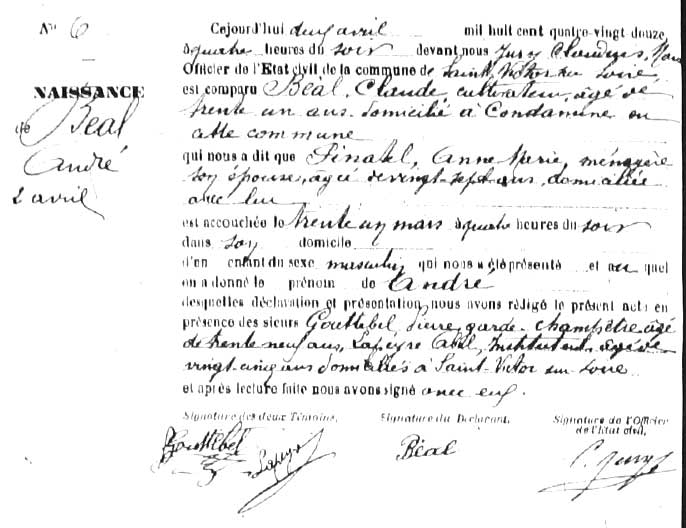 N° 6
NAISSANCE
de Béal
André
2 avril
Cejourd'hui deux avril mil huit cent quatre-vingt douze,
à quatre heures du soir devant nous Jury Claudius, Maire
Officier de l'Etat civil de la commune de Saint-Victor sur Loire,
est comparu Béal, Claude, cultivateur, âgé de
trente un ans, domicilié à Condamine en
cette commune
qui nous a dit que Pinatel, Anne Marie, ménagère
son épouse, âgée de vingt-sept ans, domiciliée
avec lui
est accouchée le trente un mars à quatre heures du soir
dans son domicile
d'un enfant du sexe masculin qui nous a été présenté et au quel
on a donné le prénom de André
desquelles déclaration et présentation, nous avons rédigé le présent acte en
présence des sieurs Gouttebel, Pierre, garde-champêtre, âgé
de trente neuf ans, Lapeyre Abel, Instituteur, âgé de
vingt-cinq ans domiciliés à Saint-Victor sur Loire
et après lecture faite nous avons signé avec eux.
Signature des deux Témoins, Signature du Déclarant, Signature de l'Officier
de l'Etat civil,
Gouttebel Lapeyre Béal C. Jury